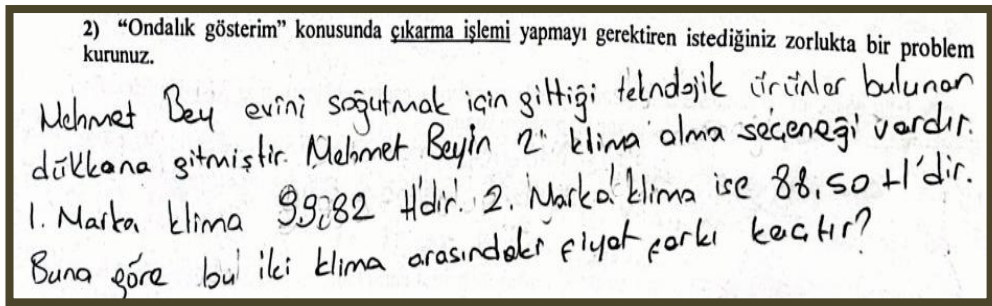 2) “Ondalık gösterim” konusunda çıkarma işlemi yapmayı gerektiren istediğiniz zorlukta bir problem
kurunuz.
Mehmet Bey evini soğutmak için gittiği teknolojik ürünler bulunan
dükkana gitmiştir. Mehmet Beyin 2 klima alma seçeneği vardır.
1. Marka klima 99,82 tl'dir. 2. Marka klima ise 88,50 tl'dir.
Buna göre bu iki klima arasındaki fiyat farkı kaçtır?